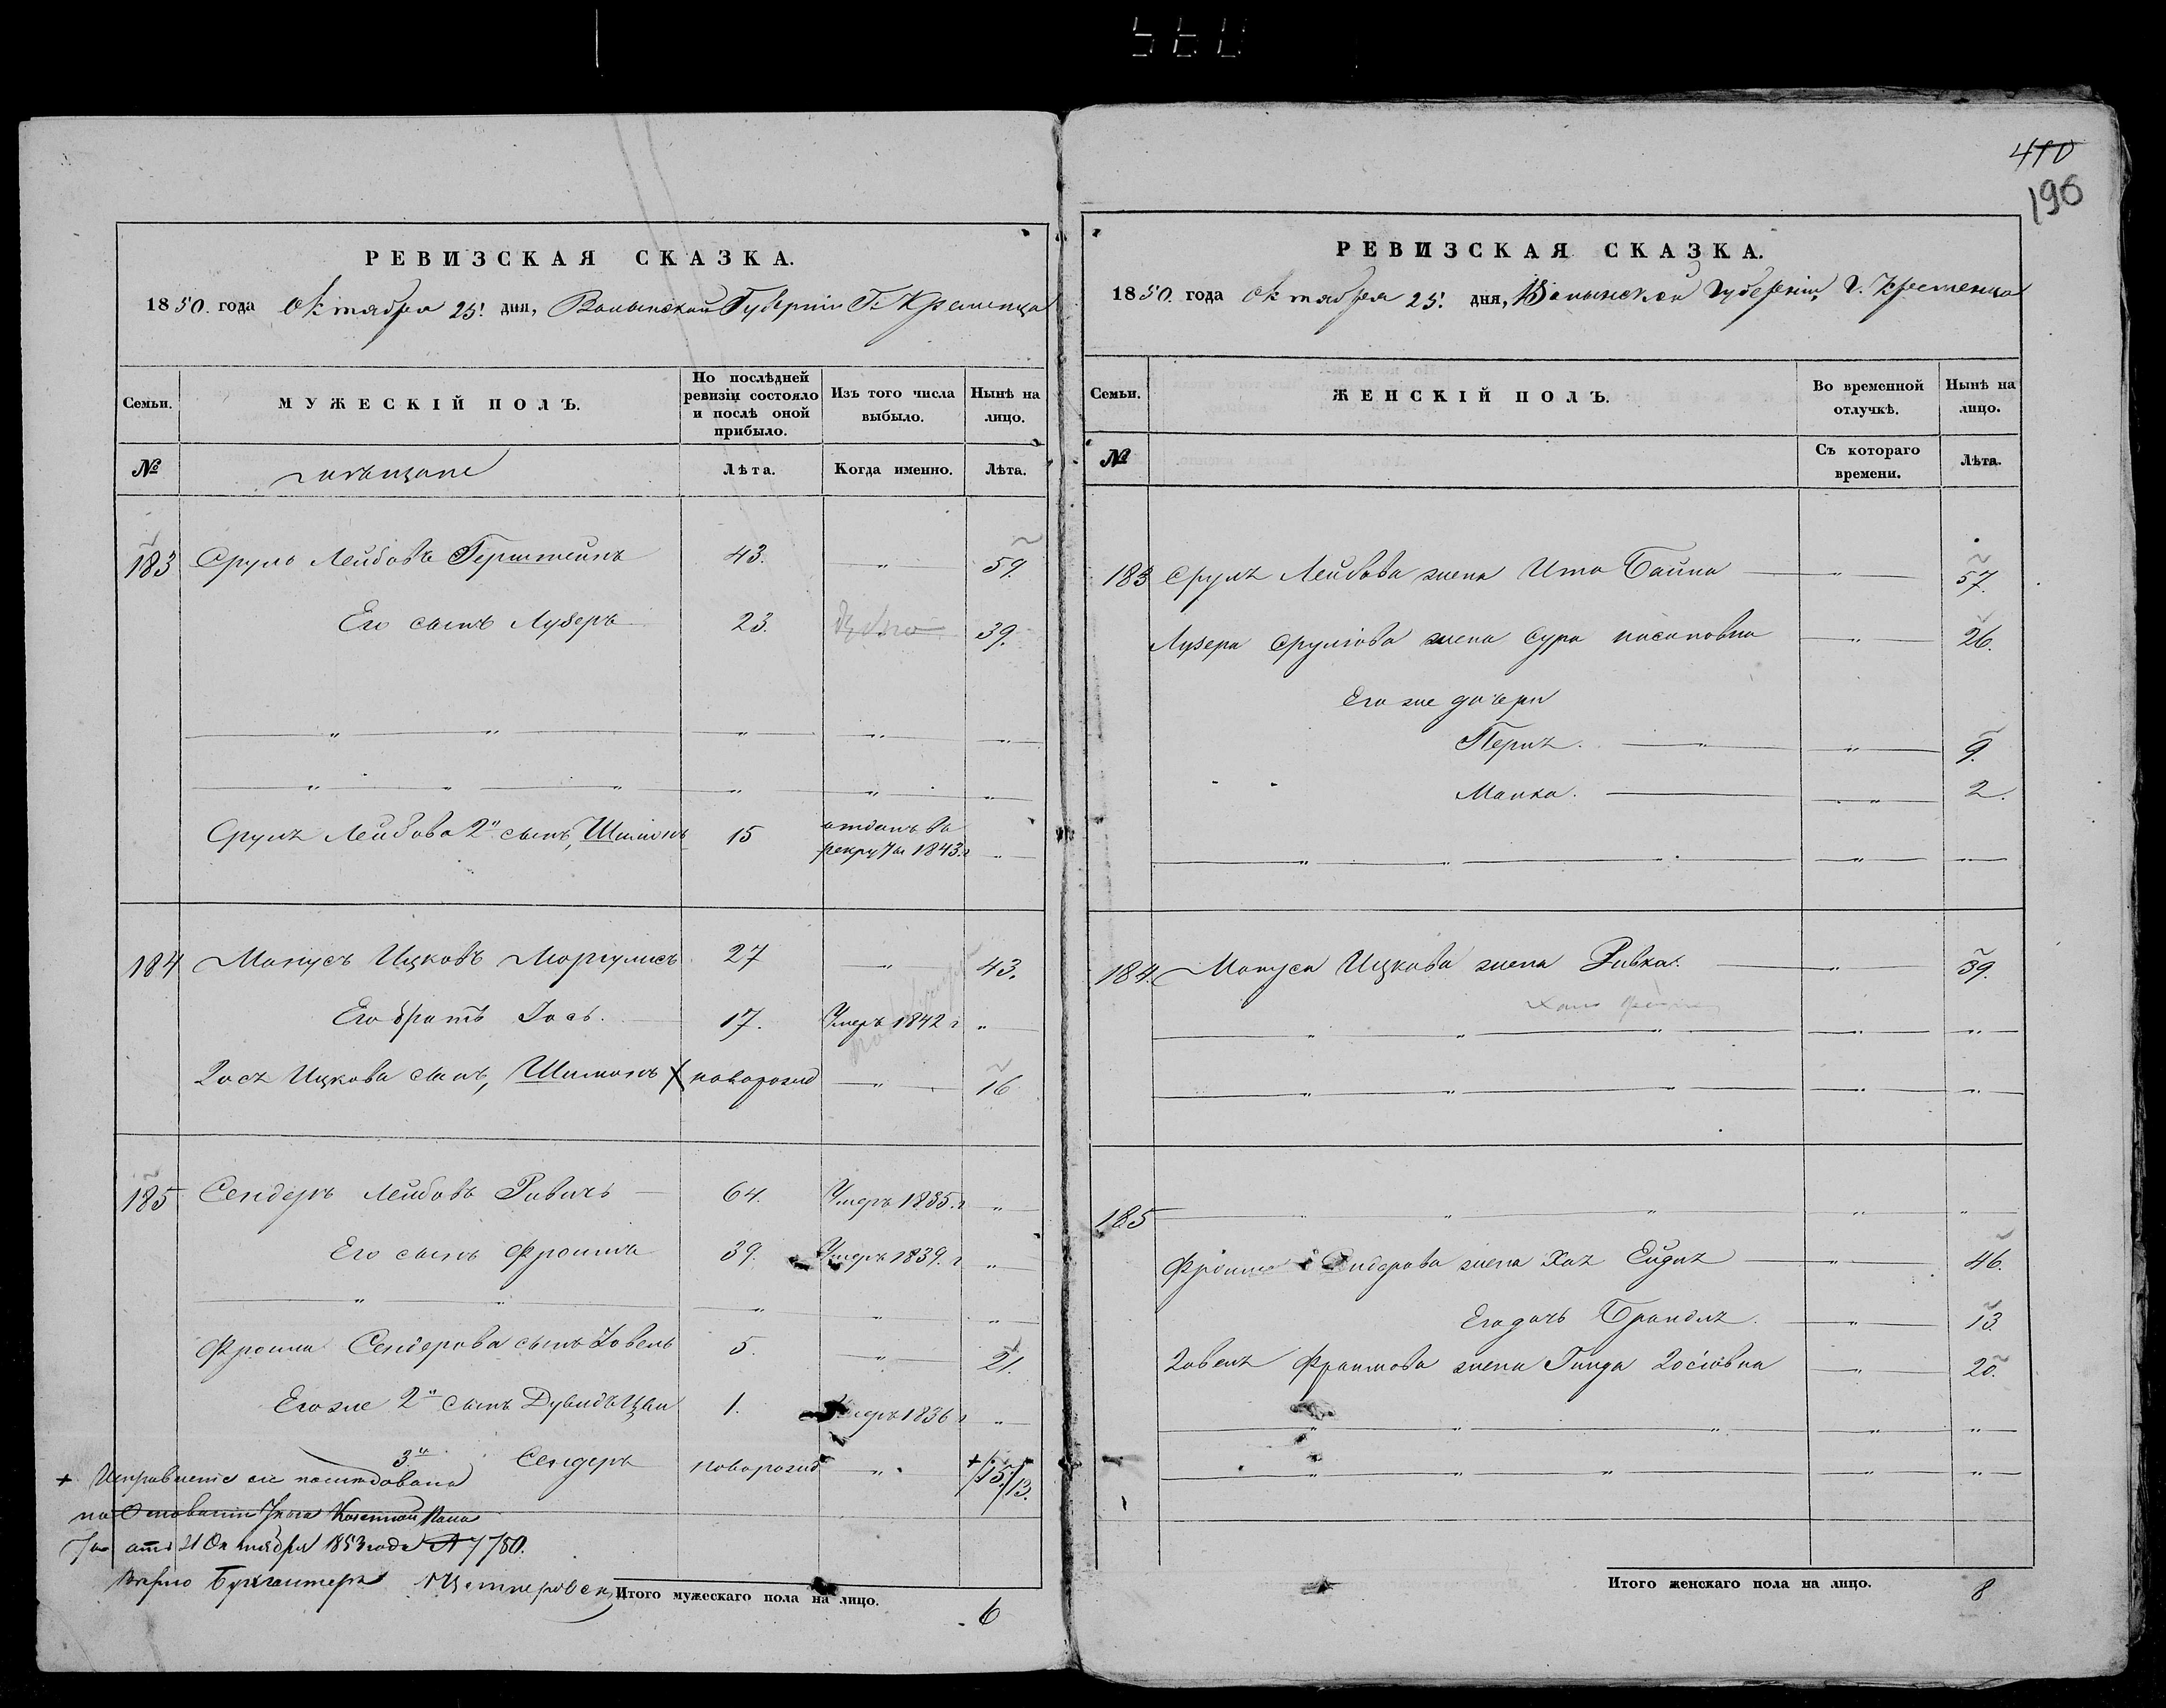 410
196
РЕВИЗСКАЯ СКАЗКА.
1850. года Октября 25. дня, Волынской Губерніи Г. Кременца
Семьи.
МУЖЕСКІЙ ПОЛЪ.
По послѣдней ревизіи состояло и послѣ оной прибыло.
Изъ того числа выбыло.
Нынѣ на лицо.
№
мѣщане
Лѣта.
Когда именно.
Лѣта.
183 Сруль Лейбовъ Герштейнъ 43. „ 59.
Его сынъ Лузеръ 23. 39.
„ „ „ „ „
„ „ „ „ „ „
Сруля Лейбова 2й сынъ, Шимонъ 15 отданъ въ рекруты 1843.г „
184 Манусъ Ицковъ Моргулисъ 27 „ 43.
Его братъ Іось. 17. Умеръ 1842 г „
Іося Ицкова сынъ, Шимонъ X новорожд „ 16
185 Сендеръ Лейбовъ Ривичъ 64. Умеръ 1835.г „
Его сынъ Фроимъ 39. Умеръ 1839.г „
„ „ „ „ „
Фроима Сендерова сынъ Ховель 5. „ 21.
Его же 2й сынъ Дувидъ Цви 1. Умеръ 1836 г „
3й Сендеръ новорожд „ + /15./13.
+ Исправленіе сіе послѣдовало
на Основаніи Указа Казенной Пала
ты отъ 21 Октября 1853 года № 7780.
Вѣрно Бухгалтеръ
Итого мужескаго пола на лицо. 6
РЕВИЗСКАЯ СКАЗКА.
1850. года Октября 25. дня, Волынской Губерніи, Г. Кременца
Семьи.
ЖЕНСКІЙ ПОЛЪ.
Во временной отлучкѣ.
Нынѣ на лицо.
№
Съ котораго времени.
Лѣта.
183 Сруля Лейбова жена Ита Байла „ 57.
Лузера Срулiова жена Сура Насановна „ 26.
Его же дочери
Перля. „ „ 9.
Малка. „ 2.
„ „ „ „ „
184. Мануса Ицкова жена Ривка. „ 39.
„ „ „ „ „
„ „ „ „ „
185 „ „ „ „ „
Фроима Сендерова жена Хая Ейдля „ 46.
Его дочь Брандля. „ 13.
Ховеля Фроимова жена Гинда Іосіовна „ 20.
„ „ „ „ „
„ „ „ „ „
Итого женскаго пола на лицо. 8